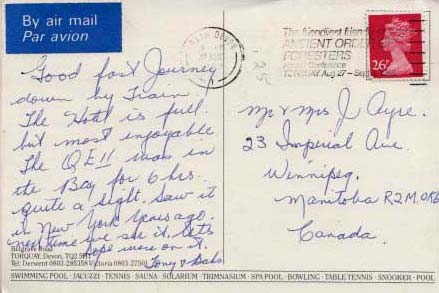 By air mail
Par avion
The friendliest friendly
ANCIENT ORDER
FORESTERS
Conference
TORQUAY Aug 27 - Sept
26P
Good fast Journey
down by Train
The Hotel is full.
but most enjoyable
The Q.E.II. was in
the Bay for 6 hrs.
quite a sight. Saw it
in New York Years ago.
next time we see it. lets
hope were on it.
Tony & Babs
Mr & Mrs J. Ayre.
23 Imperial Ave.
Winnipeg.
Manitoba R2M.
Canada.
Belgrave Road
TORQUAY, Devon, TQ2 5HT
Tel: Derwent 0803-295358 Victoria 0803-
SWIMMING POOL · JACUZZI · TENNIS · SAUNA · SOLARIUM · TRIMNASIUM · SPA POOL · BOWLING · TABLE TENNIS · SNOOKER · POOL